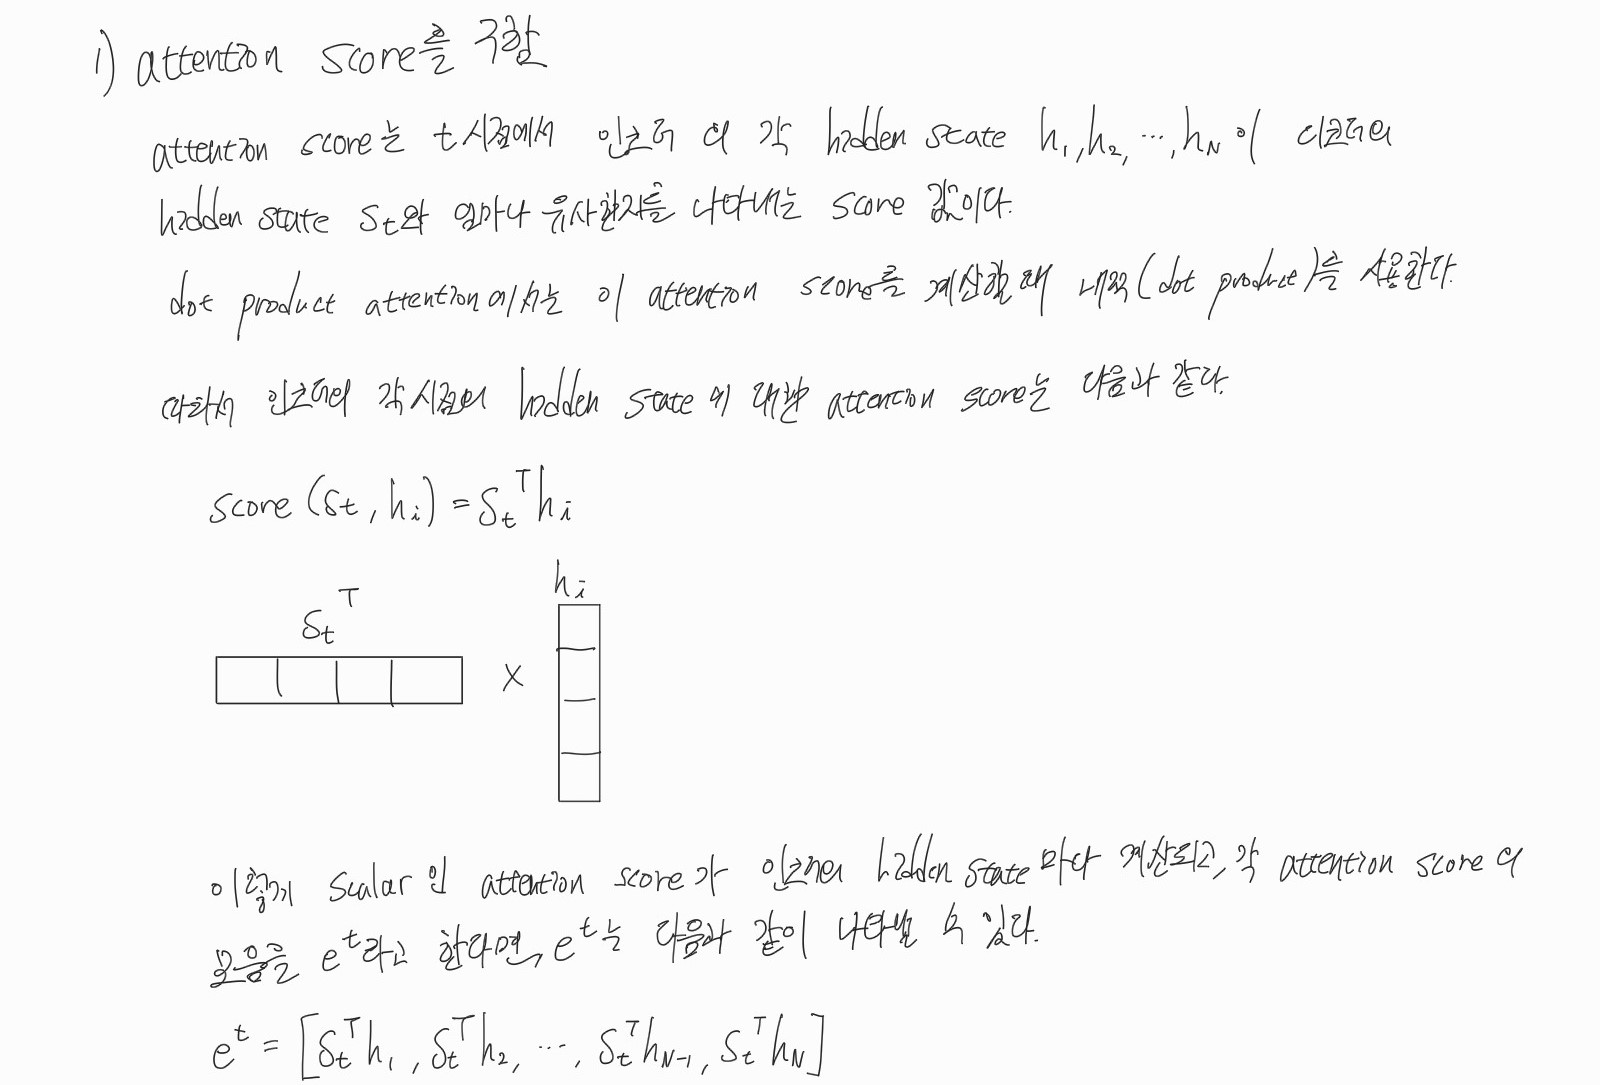 1) attention score를 구함
attention score는 t 시점에서 인코더의 각 hidden state h₁, h₂, ..., h_N이 디코더의
hidden state s_t와 얼마나 유사한지를 나타내는 score 값이다.
dot product attention에서는 이 attention score를 계산할 때 내적(dot product)를 사용한다.
따라서 인코더의 각 시점의 hidden state에 대한 attention score는 다음과 같다.
score(s_t, h_i) = s_t^T h_i
h_i
s_t^T
×
이렇게 scalar인 attention score가 인코더의 hidden state마다 계산되고, 각 attention score의
모음을 e^t라고 한다면, e^t는 다음과 같이 나타낼 수 있다.
e^t = [s_t^T h₁, s_t^T h₂, ..., s_t^T h_{N-1}, s_t^T h_N]